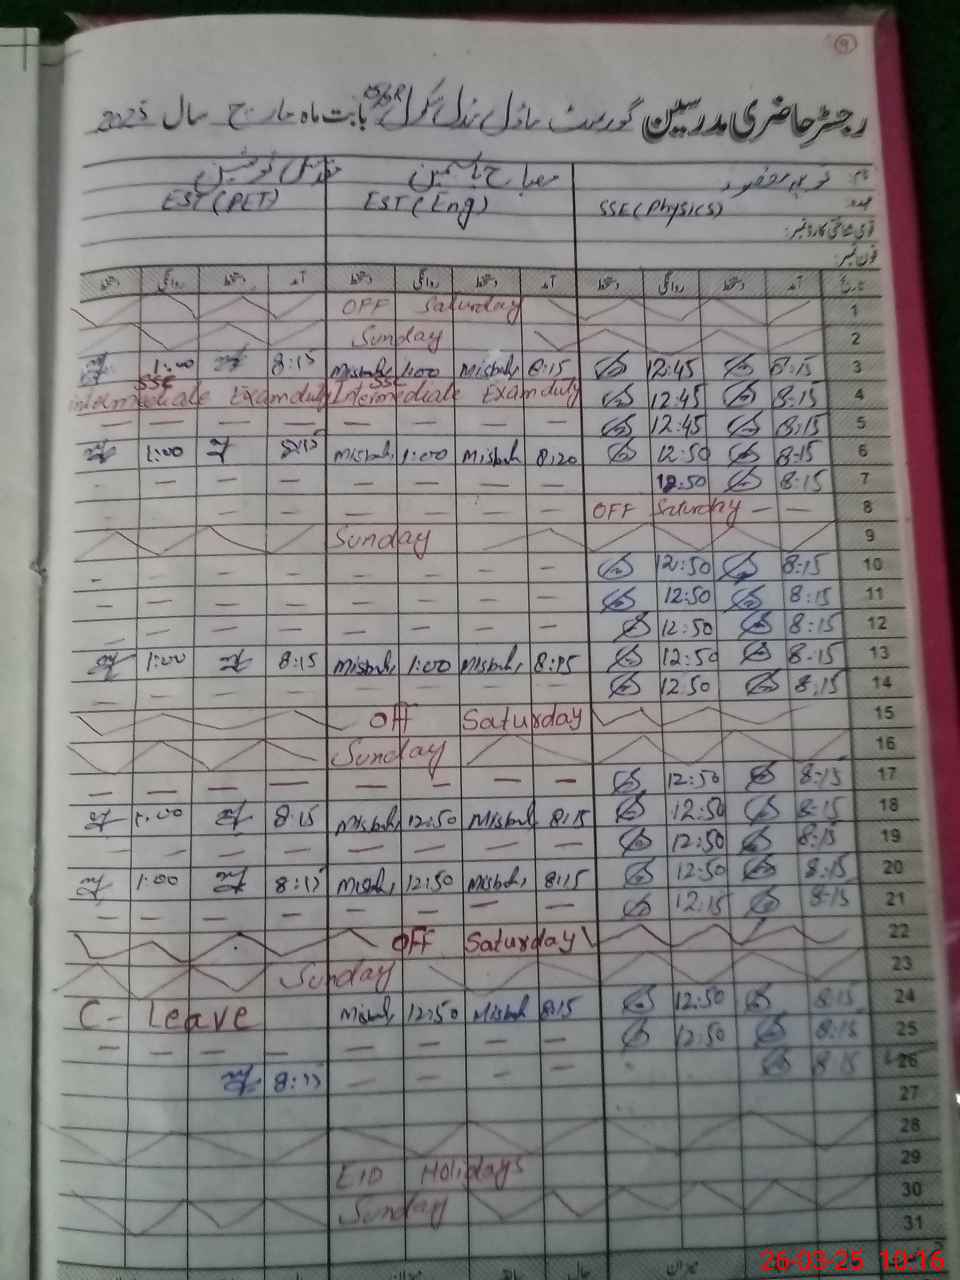 9
رجسٹر حاضری مدرسین گورنمنٹ ماڈل مڈل سکول بابت ماہ مارچ سال 2025
نام
EST (PET) EST (Eng) SSE (Physics) عہدہ
قومی شناختی کارڈ نمبر:
فون نمبر:
دستخط روانگی دستخط آمد دستخط روانگی دستخط آمد دستخط روانگی دستخط آمد تاریخ
OFF Saturday 1
Sunday 2
1:00 8:15 Misbah 1:00 Misbah 8:15 12:45 8:15 3
SSC SSC
Intermediate Exam duty Intermediate Exam duty 12:45 8:15 4
— — — — — — — — 12:45 8:15 5
1:00 8:15 Misbah 1:00 Misbah 8:20 12:50 8:15 6
— — — — — — — 12:50 8:15 7
— — — — — — — OFF Saturday — — 8
Sunday 9
— — — — — — — — 12:50 8:15 10
— — — — — — — — 12:50 8:15 11
— — — — — — — — 12:50 8:15 12
1:00 8:15 Misbah 1:00 Misbah 8:15 12:50 8:15 13
— — — — — — — — 12:50 8:15 14
Off Saturday 15
Sunday 16
— — — — — — — — 12:50 8:15 17
1:00 8:15 Misbah 12:50 Misbah 8:15 12:50 8:15 18
— — — — — — — — 12:50 8:15 19
1:00 8:15 Misbah 12:50 Misbah 8:15 12:50 8:15 20
— — — — — — — — 12:15 8:15 21
OFF Saturday 22
Sunday 23
C- Leave Misbah 12:50 Misbah 8:15 12:50 8:15 24
— — — — — — — — 12:50 8:15 25
8:15 — — — — 8:15 26
27
28
EID Holidays 29
Sunday 30
31
26-03-25 10:16